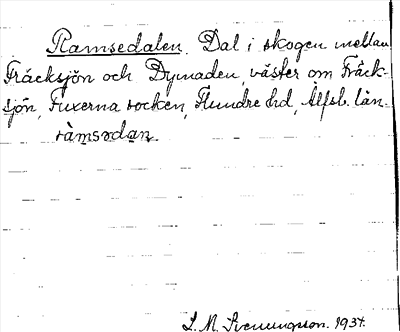 Ramsedalen. Dal i skogen mellan
Fräcksjön och Dymaden, väster om Fräck-
sjön, Fuxerna socken, Flundre hd, Älfsb. län.
ràmsədan.
S. M. Svenungsson. 1934.